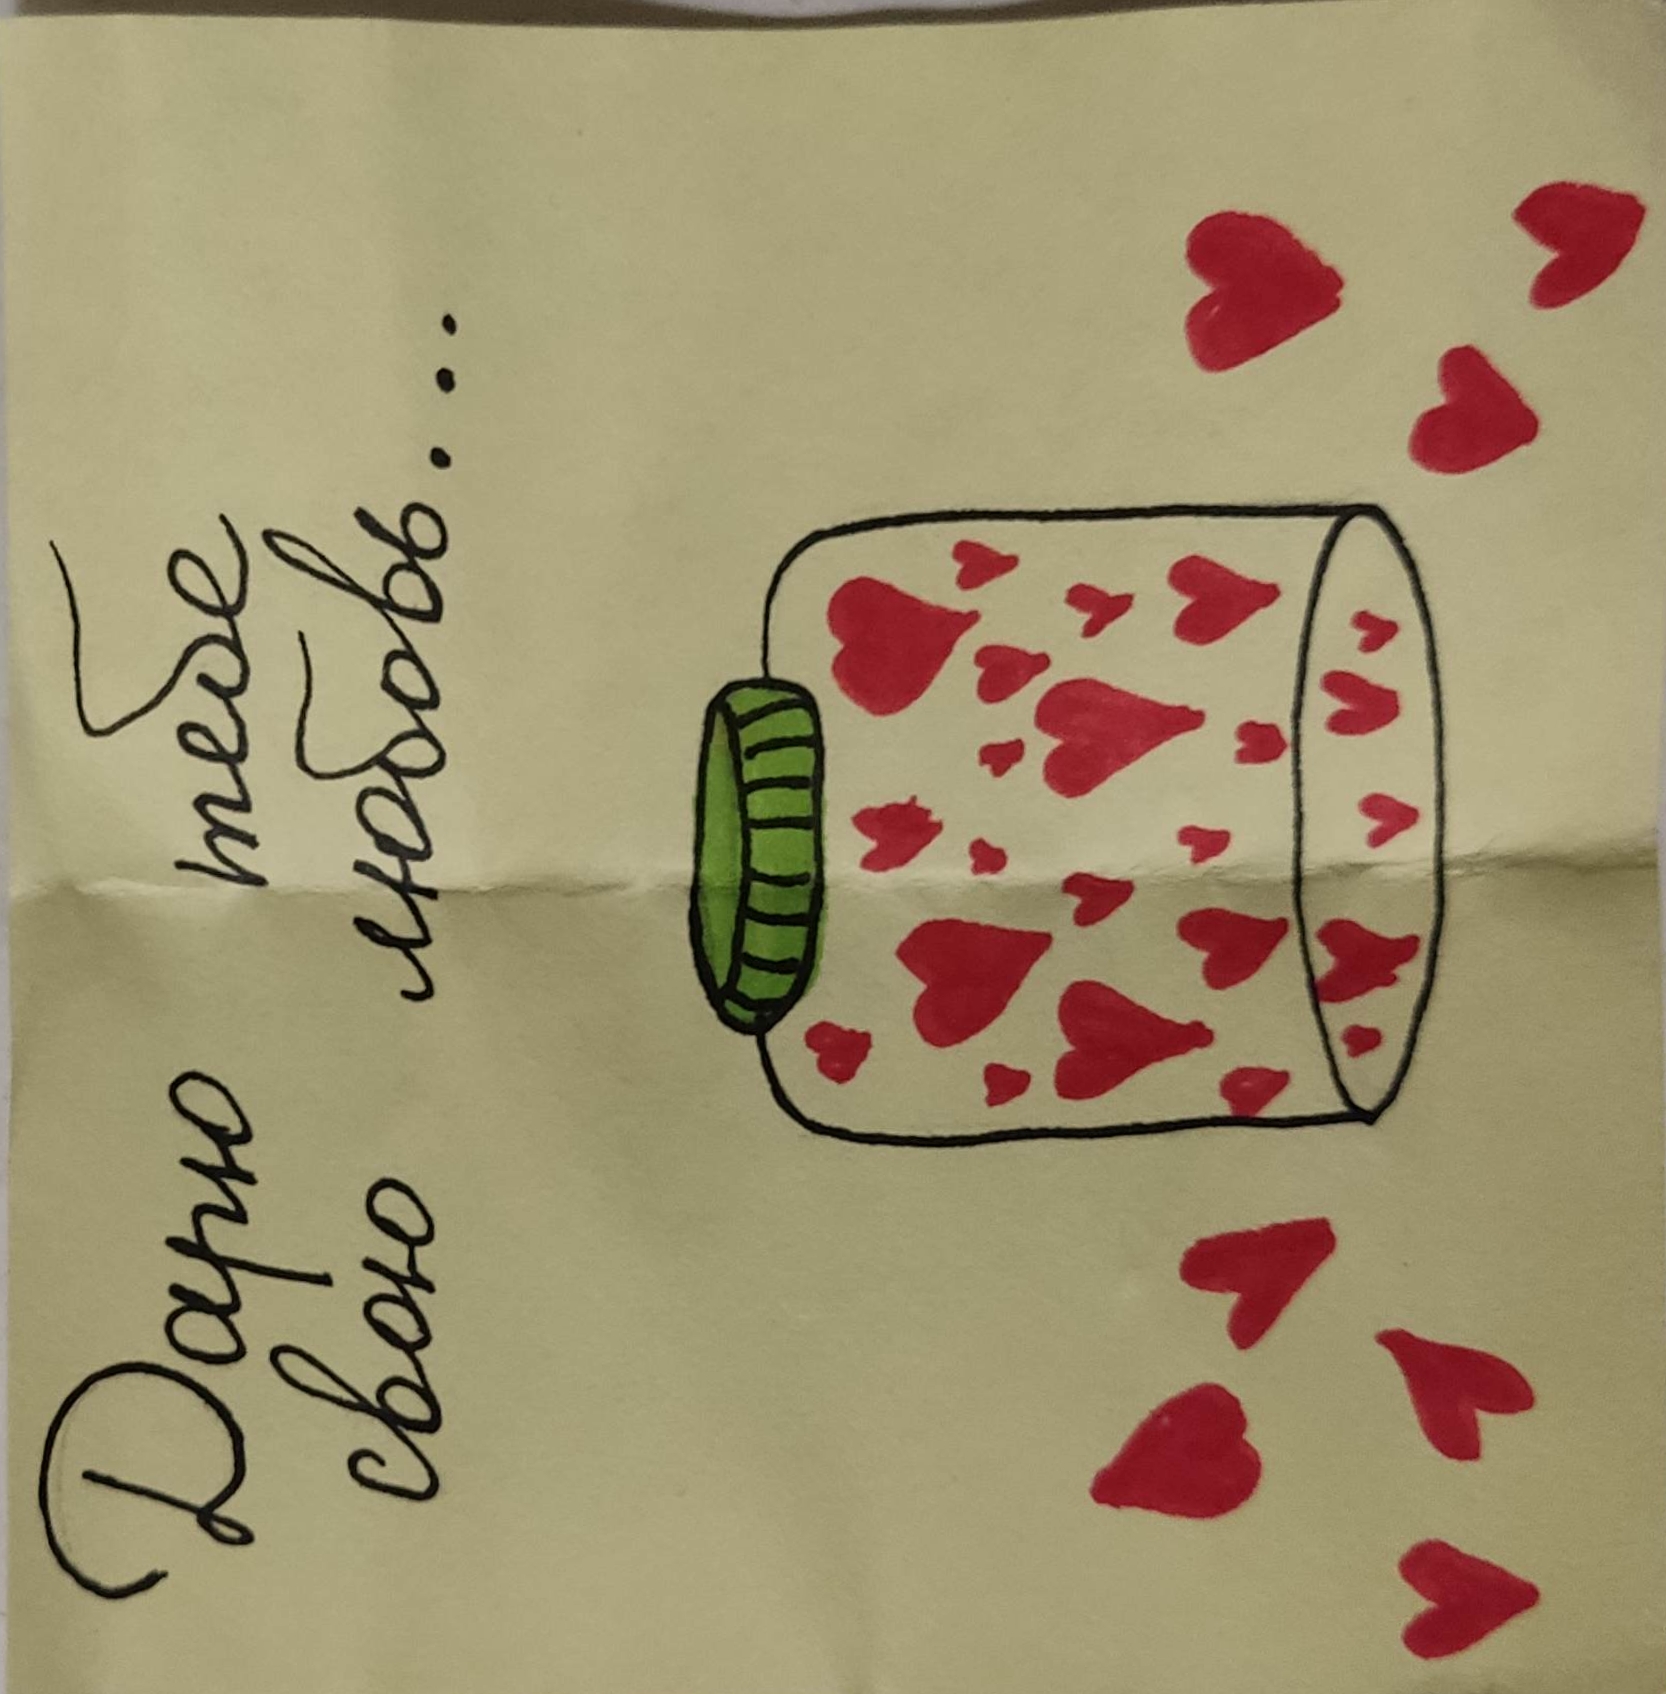 Дарю тебе
свою любовь...